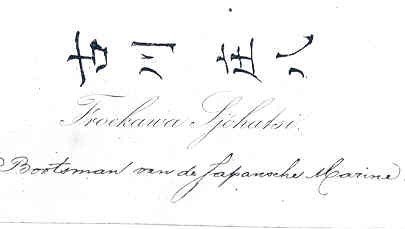 古川庄八
Froekawa Sjohatsi.
Bootsman van de Japansche Marine.